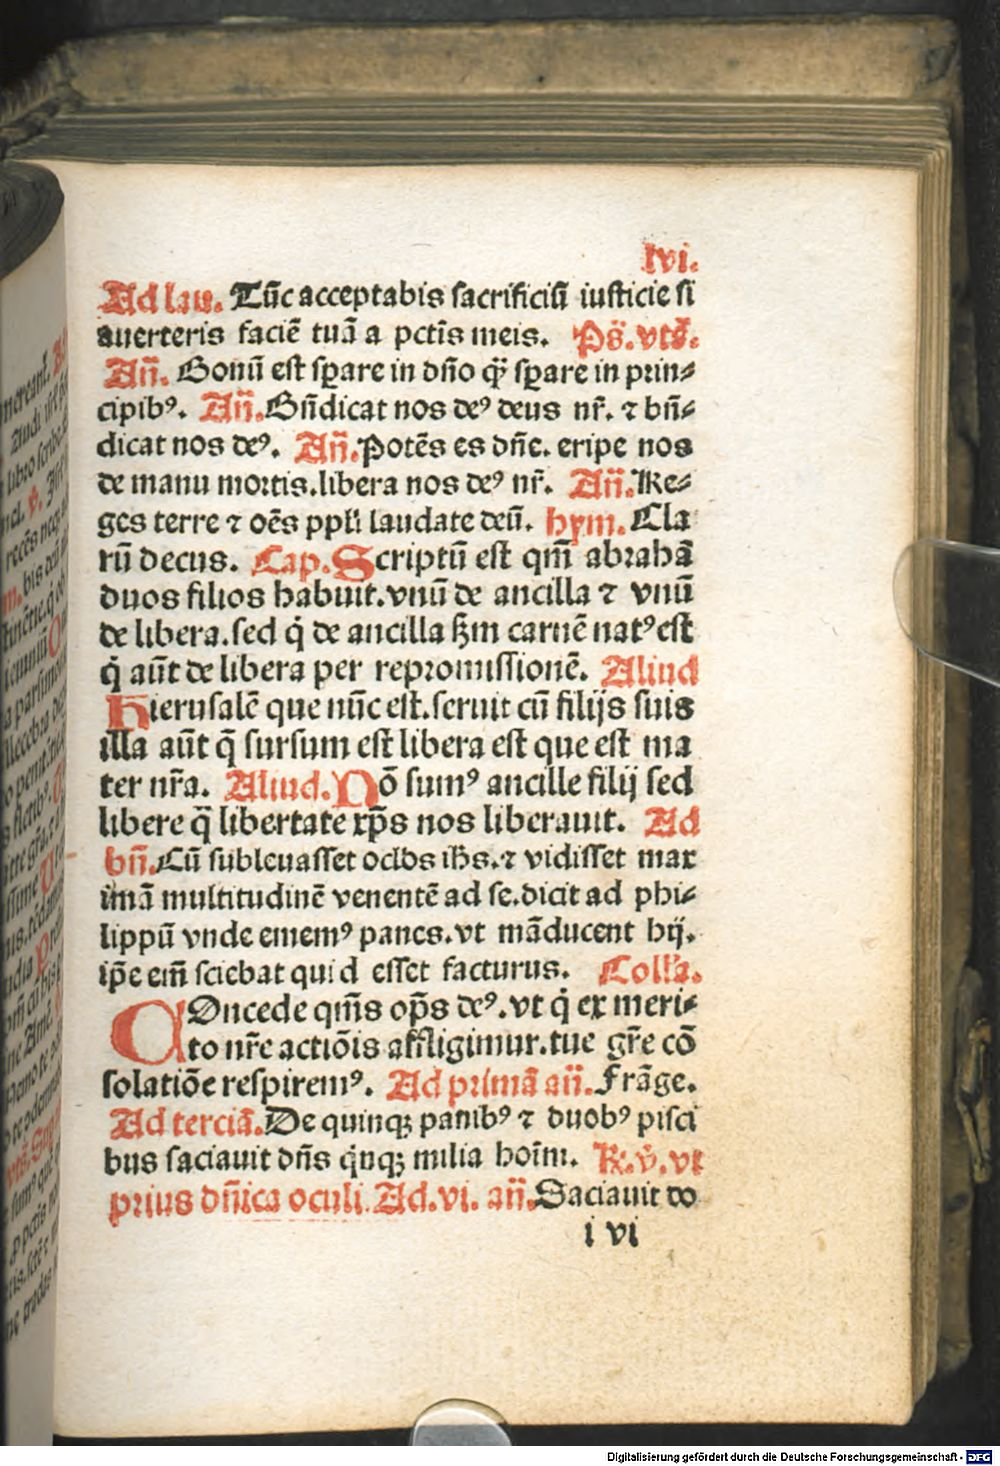 lvi.
Ad lau. Tūc acceptabis sacrificiū iusticie si
auerteris faciē tuā a pctīs meis. Ps̄. vts̄.
An̄. Bonū est sꝑare in dn̄o ꝙ̄ sꝑare in prin⸗
cipibꝰ. An̄. Bn̄dicat nos deꝰ deus nr̄. ⁊ bn̄⸗
dicat nos deꝰ. An̄. Potēs es dn̄e. eripe nos
de manu mortis. libera nos deꝰ nr̄. An̄. Re⸗
ges terre ⁊ oēs ppl̄i laudate deū. hym. Cla
rū decus. Cap. Scriptū est qm̄ abrahā
duos filios habuit. vnū de ancilla ⁊ vnū
de libera. sed q̇ de ancilla ẜm carnē natꝰ est
q̇ aūt de libera per repromissionē. Aliud
Hierusalē que nūc est. seruit cū filijs suis
illa aūt q̄ sursum est libera est que est ma
ter nr̄a. Aliud. Nō sumꝰ ancille filij sed
libere q̄ libertate xp̄s nos liberauit. Ad
bn̄. Cū subleuasset oclōs ih̄s. ⁊ vidisset max
imā multitudinē venentē ad se. dicit ad phi⸗
lippū vnde ememꝰ panes. vt māducent hij.
ip̄e em̄ sciebat quid esset facturus. Coll̄a.
COncede qm̄s op̄s deꝰ. vt q̇ ex meri⸗
to nr̄e actiōis affligimur. tue gr̄e cō
solatiōe respiremꝰ. Ad primā an̄. Frāge.
Ad terciā. De quinqꝫ panibꝰ ⁊ duobꝰ pisci
bus saciauit dn̄s q̇nqꝫ milia hoīm. ℟. v̄. vt
prius dn̄ica oculi. Ad. vi. an̄. Saciauit do
i vi
nereant.
Audi
libro
bis
tur gr̄a.
sumꝰ
Digitalisierung gefördert durch die Deutsche Forschungsgemeinschaft - DFG